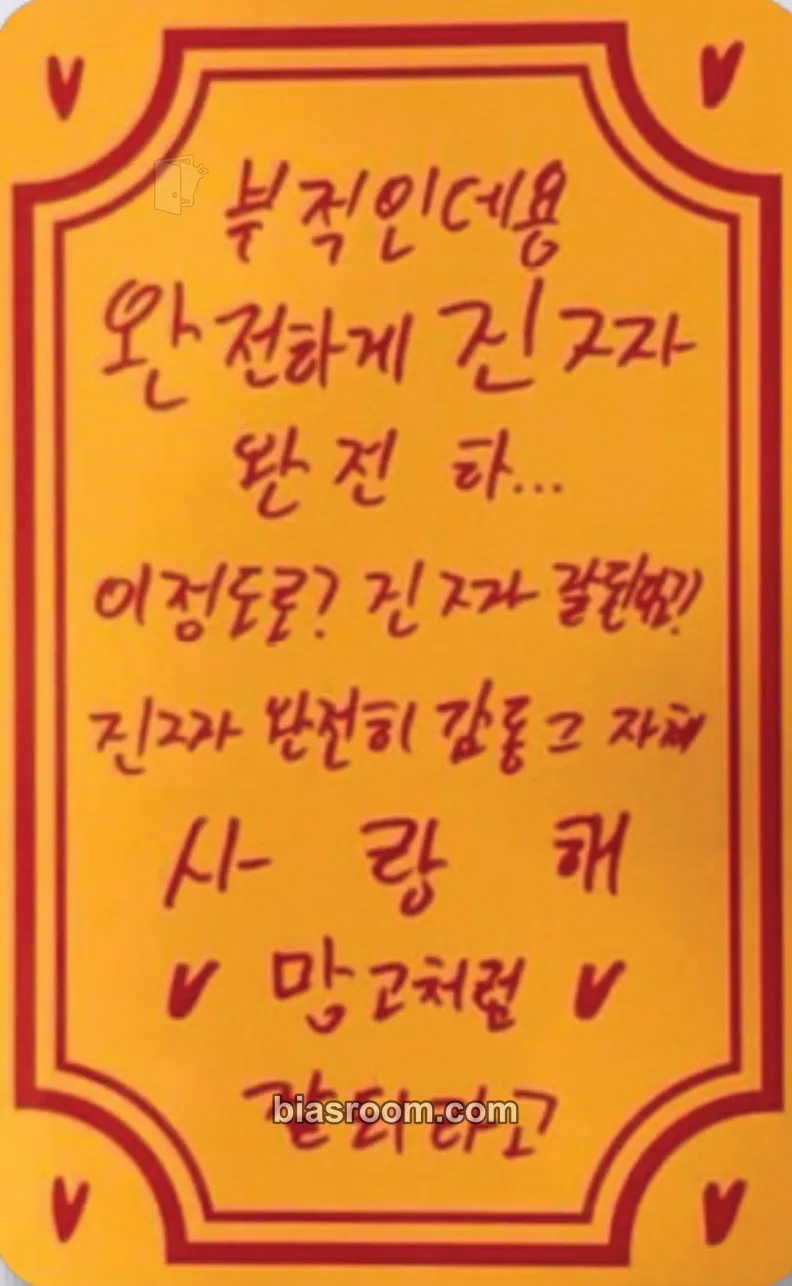 부적인데용
완전하게 진짜
완전 하...
이정도로? 진짜 잘된
진짜 완전히 감동 그 자체
사랑해
망고처럼
잘되라고
biasroom.com